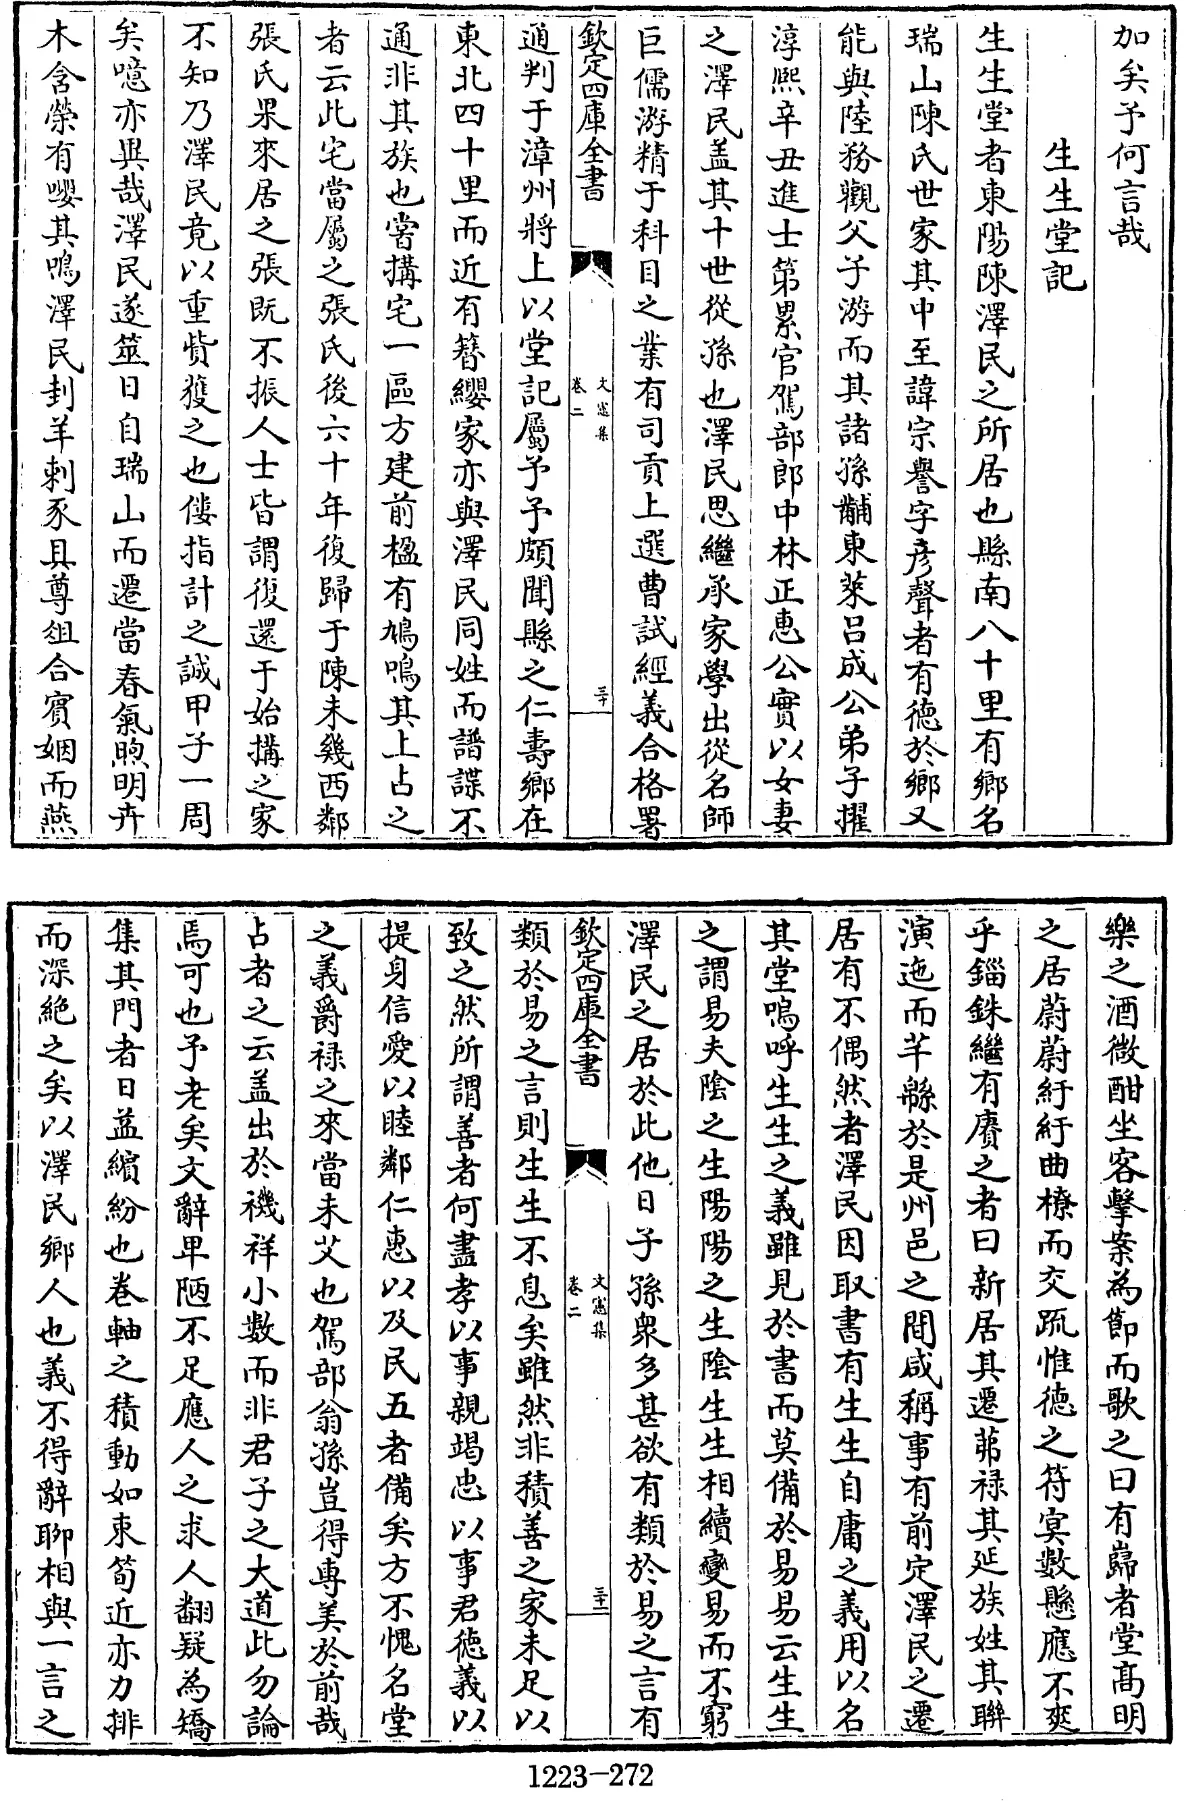 加矣予何言哉
生生堂記
生生堂者東陽陳澤民之所居也縣南八十里有鄉名
瑞山陳氏世家其中至諱宗譽字彦聲者有德於鄉又
能與陸務觀父子游而其諸孫黼東萊吕成公弟子擢
淳熙辛丑進士第累官駕部郎中林正惠公實以女妻
之澤民盖其十世從孫也澤民思繼承家學出從名師
巨儒游精于科目之業有司貢上選曹試經義合格署
欽定四庫全書
文憲集
卷二
三十
通判于漳州將上以堂記屬予予頗聞縣之仁壽鄉在
東北四十里而近有簪纓家亦與澤民同姓而譜諜不
通非其族也嘗搆宅一區方建前楹有鳩鳴其上占之
者云此宅當屬之張氏後六十年復歸于陳未幾西鄰
張氏果來居之張既不振人士皆謂復還于始搆之家
不知乃澤民竟以重貲獲之也僂指計之誠甲子一周
矣噫亦異哉澤民遂筮日自瑞山而遷當春氣煦明卉
木含榮有嚶其鳴澤民刲羊刺豕具尊俎合賓姻而燕
樂之酒微酣坐客擊案為節而歌之曰有巋者堂高明
之居蔚蔚紆紆曲橑而交疏惟德之符㝠數懸應不爽
乎錙銖繼有賡之者曰新居其遷茀禄其延族姓其聨
演迤而芊緜於是州邑之間咸稱事有前定澤民之遷
居有不偶然者澤民因取書有生生自庸之義用以名
其堂嗚呼生生之義雖見於書而莫備於易易云生生
之謂易夫陰之生陽陽之生陰生生相續變易而不窮
澤民之居於此他日子孫衆多甚欲有類於易之言有
欽定四庫全書
文憲集
卷二
三十一
類於易之言則生生不息矣雖然非積善之家未足以
致之然所謂善者何盡孝以事親竭忠以事君德義以
提身信愛以睦鄰仁惠以及民五者備矣方不愧名堂
之義爵禄之來當未艾也駕部翁孫豈得專美於前哉
占者之云盖出於禨祥小數而非君子之大道此勿論
焉可也予老矣文辭卑陋不足應人之求人翻疑為矯
集其門者日益繽紛也卷軸之積動如束筍近亦力排
而深絶之矣以澤民鄉人也義不得辭聊相與一言之
1223-272